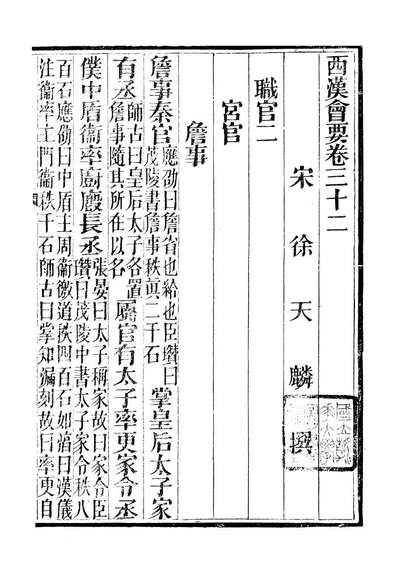 西漢會要卷三十二
宋徐天麟撰
職官二
宮官
詹事
詹事秦官應劭曰詹省也給也臣瓚曰茂陵書詹事秩真二千石掌皇后太子家
有丞師古曰皇后太子各置一詹事隨其所在以名屬官有太子率更家令丞
僕中盾衞率廚廄長丞張晏曰太子稱家故曰家令臣瓚曰茂陵中書太子家令秩八
百石應劭曰中盾主周衞徼道秩四百石如淳曰漢儀
注衞率主門衞秩千石師古曰掌知漏刻故曰率更自